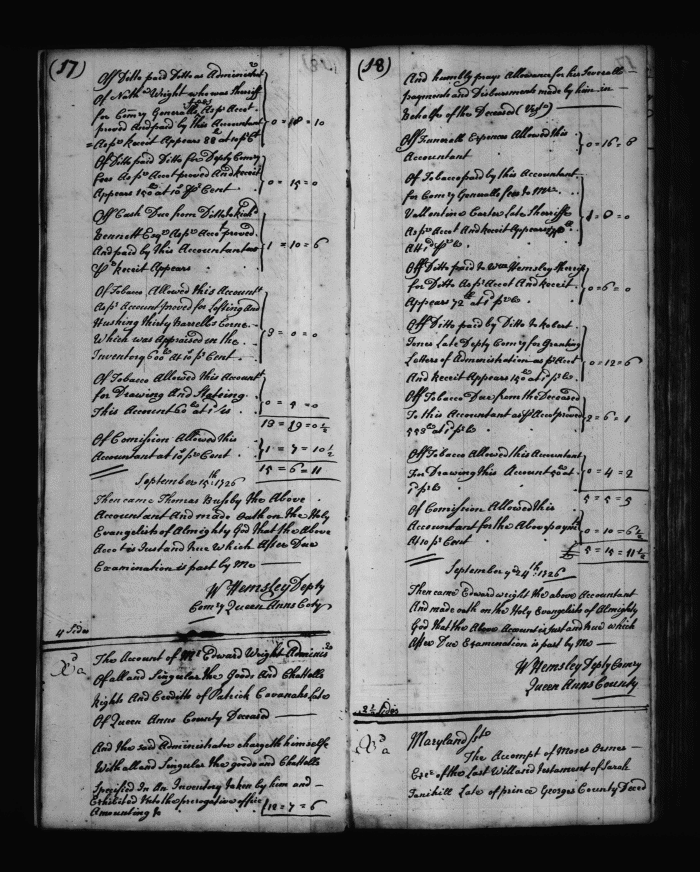 (17)
Off Ditto paid Ditto as Administ
Of Nath Wright who was Sheriff
for Comry Generalls Fees As pr Accot
proved And paid by this Accountant
As pr receit Appears 88 at 10 pr Ct 0 = 18 = 10
Of Ditto paid Ditto for Depty Comry
Fees As pr Accot proved And receit
Appears 150 at 10 pr Cent 0 = 15 = 0
Off Cash Due from Ditto to Richd
Bennett Esqr As pr Accot proved
And paid by this Accountant
pr receit Appears 1 = 10 = 6
Of Tobacco Allowed this Account
As pr Account proved for Lofting And
Husking thirty Barrells Corne
Which was Appraised in the
Inventory 600 At 10 pr Cent 3 = 0 = 0
Of Tobacco Allowed this Account
for Drawing And Stateing
This Account 60 at 1/s 0 = 4 = 0
13 = 19 = 0 ½
Of Comission Allowed this
Accountant at 10 pr Cent 1 = 7 = 10 ½
15 = 6 = 11
September 15th 1726
Then came Thomas Bussby the Above
Accountant And made oath on the Holy
Evangelish of Almighty God that the Above
Accot is Just and true Which After Due
Examination is past by Me
W Hemsley Depty
Comry Queen Anns Coty
4 Sides
Xd a
The Account of Mr Edward Wright Adminisr
Of all and Singular the Goods and Chattells
Rights And Creditts of Patrick Cavanah Late
Of Queen Anns County Deceased
And the said Administrator chargeth himselfe
With all and Singular the goods and Chattells
Specified In An Inventory taken by him and
Exhibited Into the prerogative office
Amounting to 12 = 7 = 6
(18)
And humbly prays Allowance for his Severall
payments and Disbursments made by him in
Behalfe of the Deceased (Vizt)
Off Funerall Expences Allowed this
Accountant 0 = 16 = 8
Of Tobacco paid by this Accountant
for Comry Generalls fees to Mr
Vallentine Carter Late Sherriff
As pr Accot And receit Appears
At 1d pr lb 1 = 0 = 0
Off Ditto paid to Wm Hemsley Sherriff
for Ditto As pr Accot And receit
Appears 72 at 1d pr lb 0 = 6 = 0
Off Ditto paid by Ditto to Robert
Jones Late Depty Comry for Granting
Letters of Administration as pr Accot
And receit Appears 150 at 1d pr lb 0 = 12 = 6
Off Tobacco Due from the Deceased
To this Accountant as pr Accot proved
553 at 1d pr lb 2 = 6 = 1
Off Tobacco Allowed this Accountant
For Drawing this Account 50 at
1d pr lb 0 = 4 = 2
5 = 5 = 5
Of Comission Allowed this
Accountant for the Above paymts
At 10 pr Cent 0 = 10 = 6 ½
5 = 15 = 11 ½
September ye 24th 1726
Then came Edward wright the above Accountant
And made oath on the Holy Evangelish of Almighty
God that the Above Account is just and true which
After Due Examination is past by Me
W Hemsley Depty Comry
Queen Anns County
3 ½ Sides
Xd a
Maryland sst
The Accompt of Moses
Exr of the Last Will and Testament of Sarah
Late of prince Georges County Deced